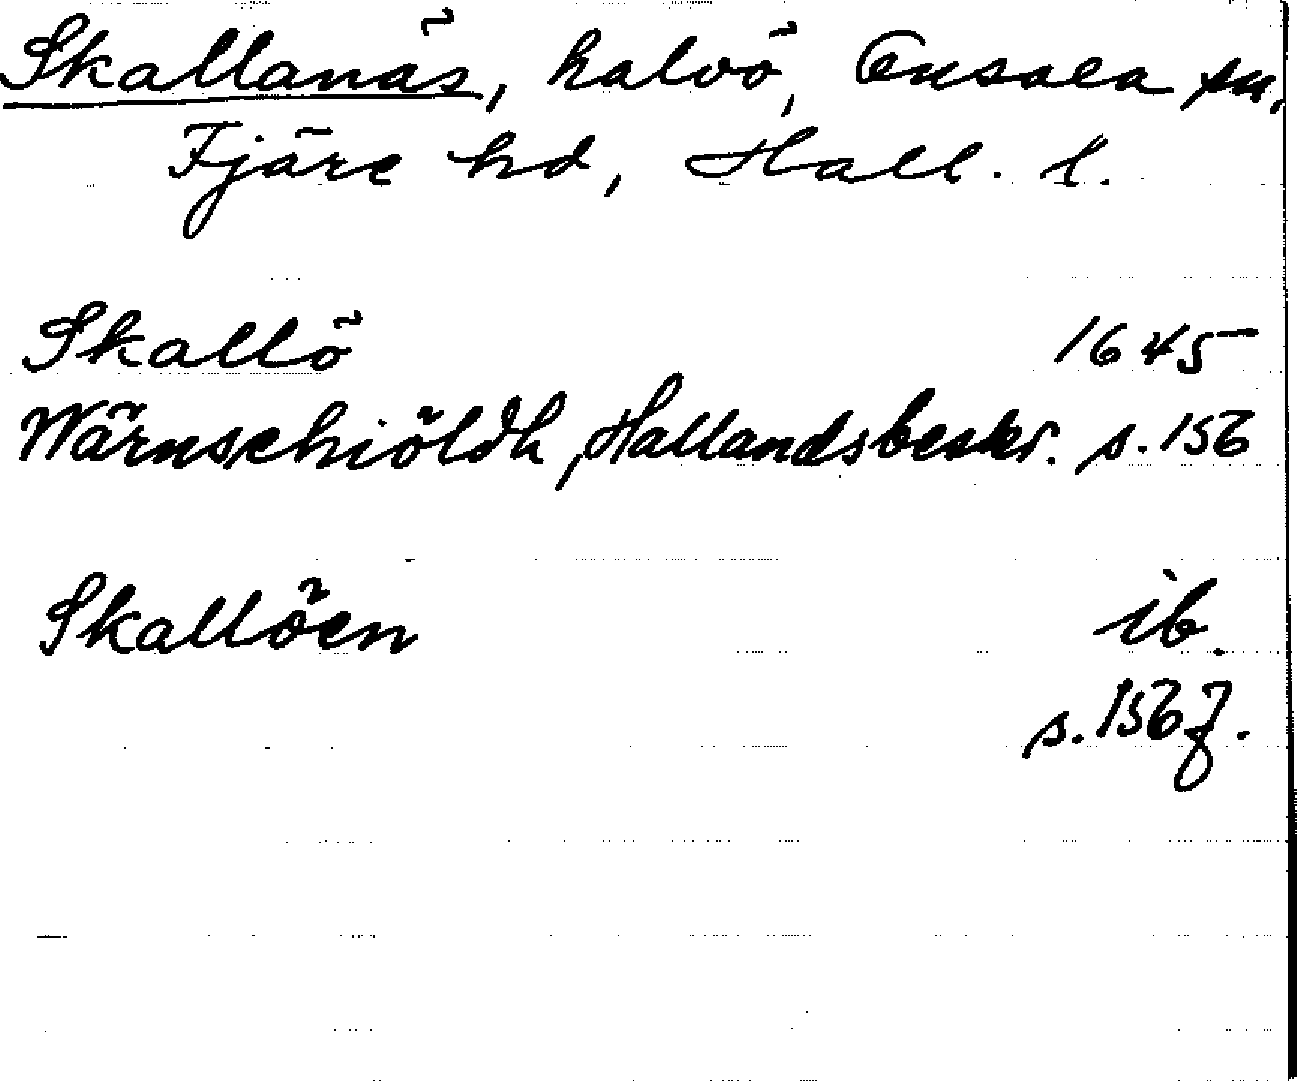 Skallanäs, halvö, Onsala sn,
Fjäre hd, Hall. l.
Skallö 1645
Wärnschiöldh, Hallandsbeskr. s. 156
Skallöen ib.
s. 156 f.